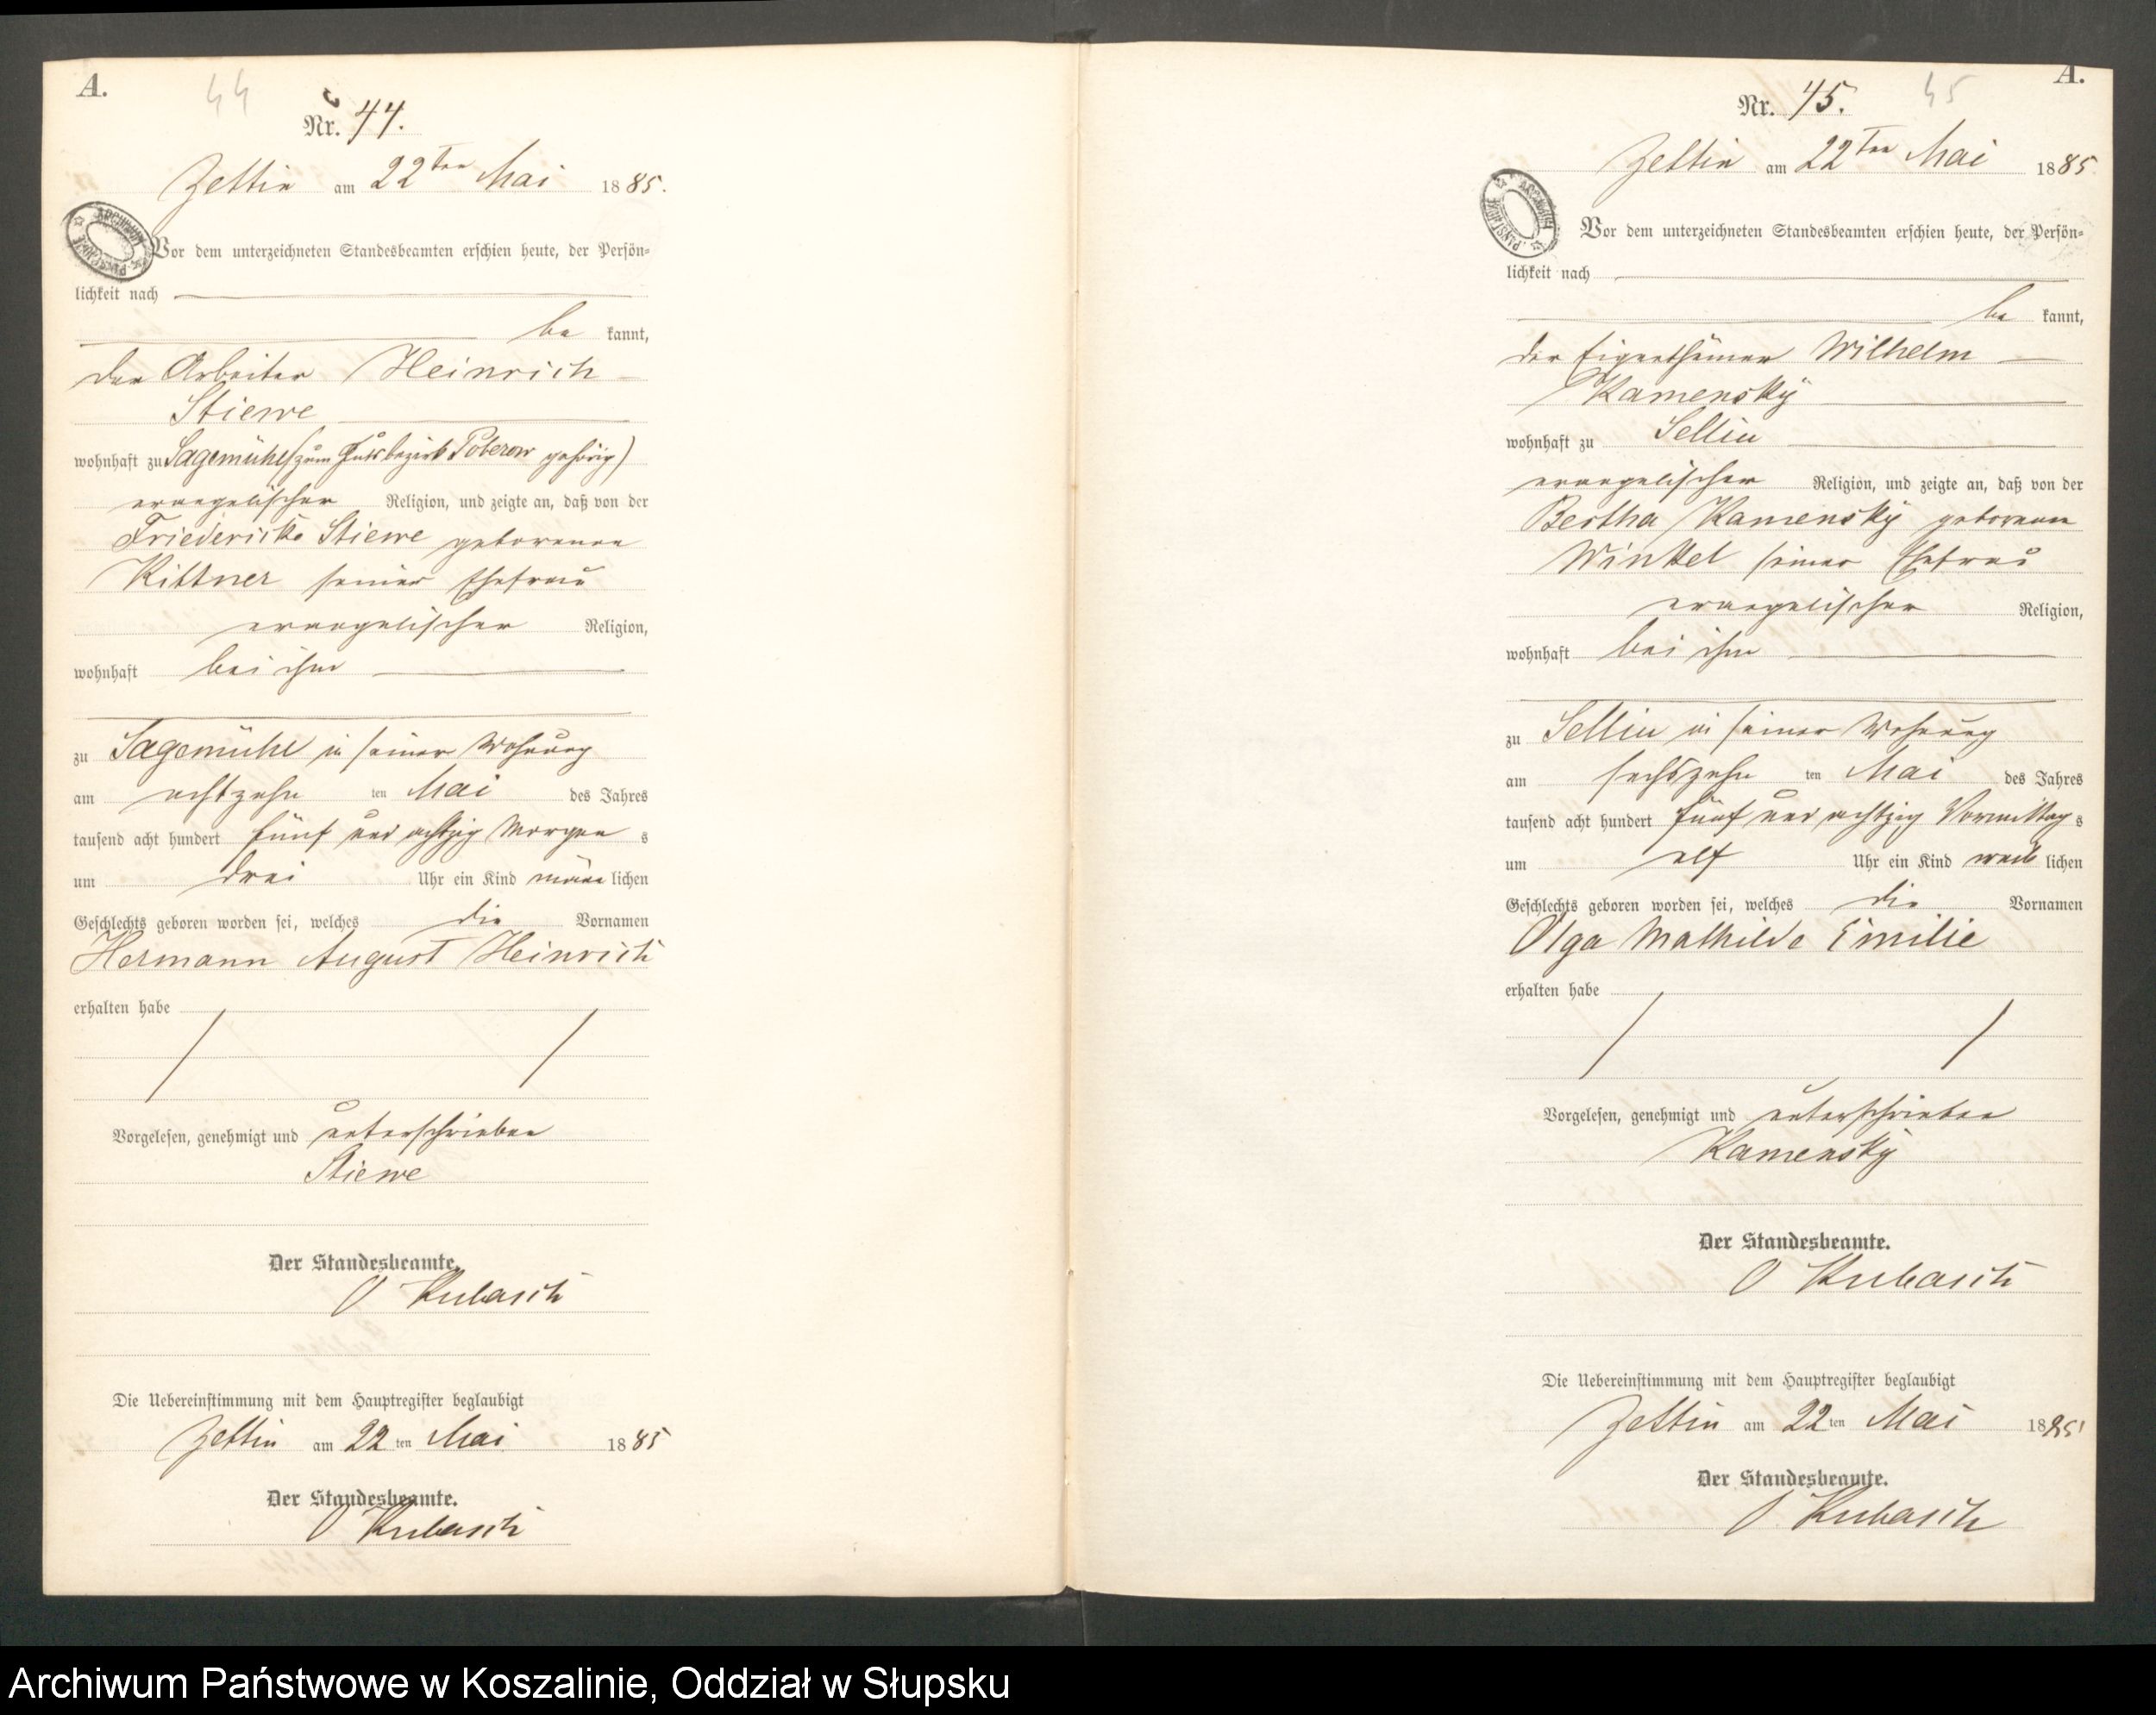 A.
44
Nr. 44.
Zettin am 22ten Mai 1885.
ARCHIWUM PAŃSTWOWE
Vor dem unterzeichneten Standesbeamten erschien heute, der Persön=
lichkeit nach
be kannt,
der Arbeiter Heinrich
Stiewe
wohnhaft zu Sägemühle (zum Gutsbezirk Poberow gehörig)
evangelischer Religion, und zeigte an, daß von der
Friedericke Stiewe geborenen
Kittner seiner Ehefrau
evangelischer Religion,
wohnhaft bei ihm
zu Sägemühle in seiner Wohnung
am achtzehn ten Mai des Jahres
tausend acht hundert fünf und achtzig Morgen s
um drei Uhr ein Kind männ lichen
Geschlechts geboren worden sei, welches die Vornamen
Hermann August Heinrich
erhalten habe
Vorgelesen, genehmigt und unterschrieben
Stiewe
Der Standesbeamte.
O Kubasch
Die Uebereinstimmung mit dem Hauptregister beglaubigt
Zettin am 22 ten Mai 1885
Der Standesbeamte.
O Kubasch
A.
45
Nr. 45.
Zettin am 22ten Mai 1885
ARCHIWUM PAŃSTWOWE
Vor dem unterzeichneten Standesbeamten erschien heute, der Persön=
lichkeit nach
be kannt,
der Eigenthümer Wilhelm
Kamensky
wohnhaft zu Sellin
evangelischer Religion, und zeigte an, daß von der
Bertha Kamensky geborenen
Winkel seiner Ehefrau
evangelischer Religion,
wohnhaft bei ihm
zu Sellin in seiner Wohnung
am sechszehn ten Mai des Jahres
tausend acht hundert fünf und achtzig Vormittag s
um elf Uhr ein Kind weib lichen
Geschlechts geboren worden sei, welches die Vornamen
Olga Mathilde Emilie
erhalten habe
Vorgelesen, genehmigt und unterschrieben
Kamensky
Der Standesbeamte.
O Kubasch
Die Uebereinstimmung mit dem Hauptregister beglaubigt
Zettin am 22 ten Mai 1885
Der Standesbeamte.
O Kubasch
Archiwum Państwowe w Koszalinie, Oddział w Słupsku